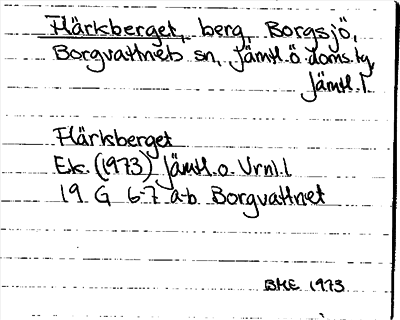 Flärkberget, berg, Borgsjö,
Borgvattnets sn, Jämtl. ö. doms. tg,
Jämtl. l.
Flärksberget
Ek. (1973) Jämtl. o. Vrnl. l
19 G 6-7 a-b Borgvattnet
BME 1973